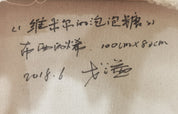 《维米尔的泡泡糖》
布面油彩 100cm×80cm
2018.6